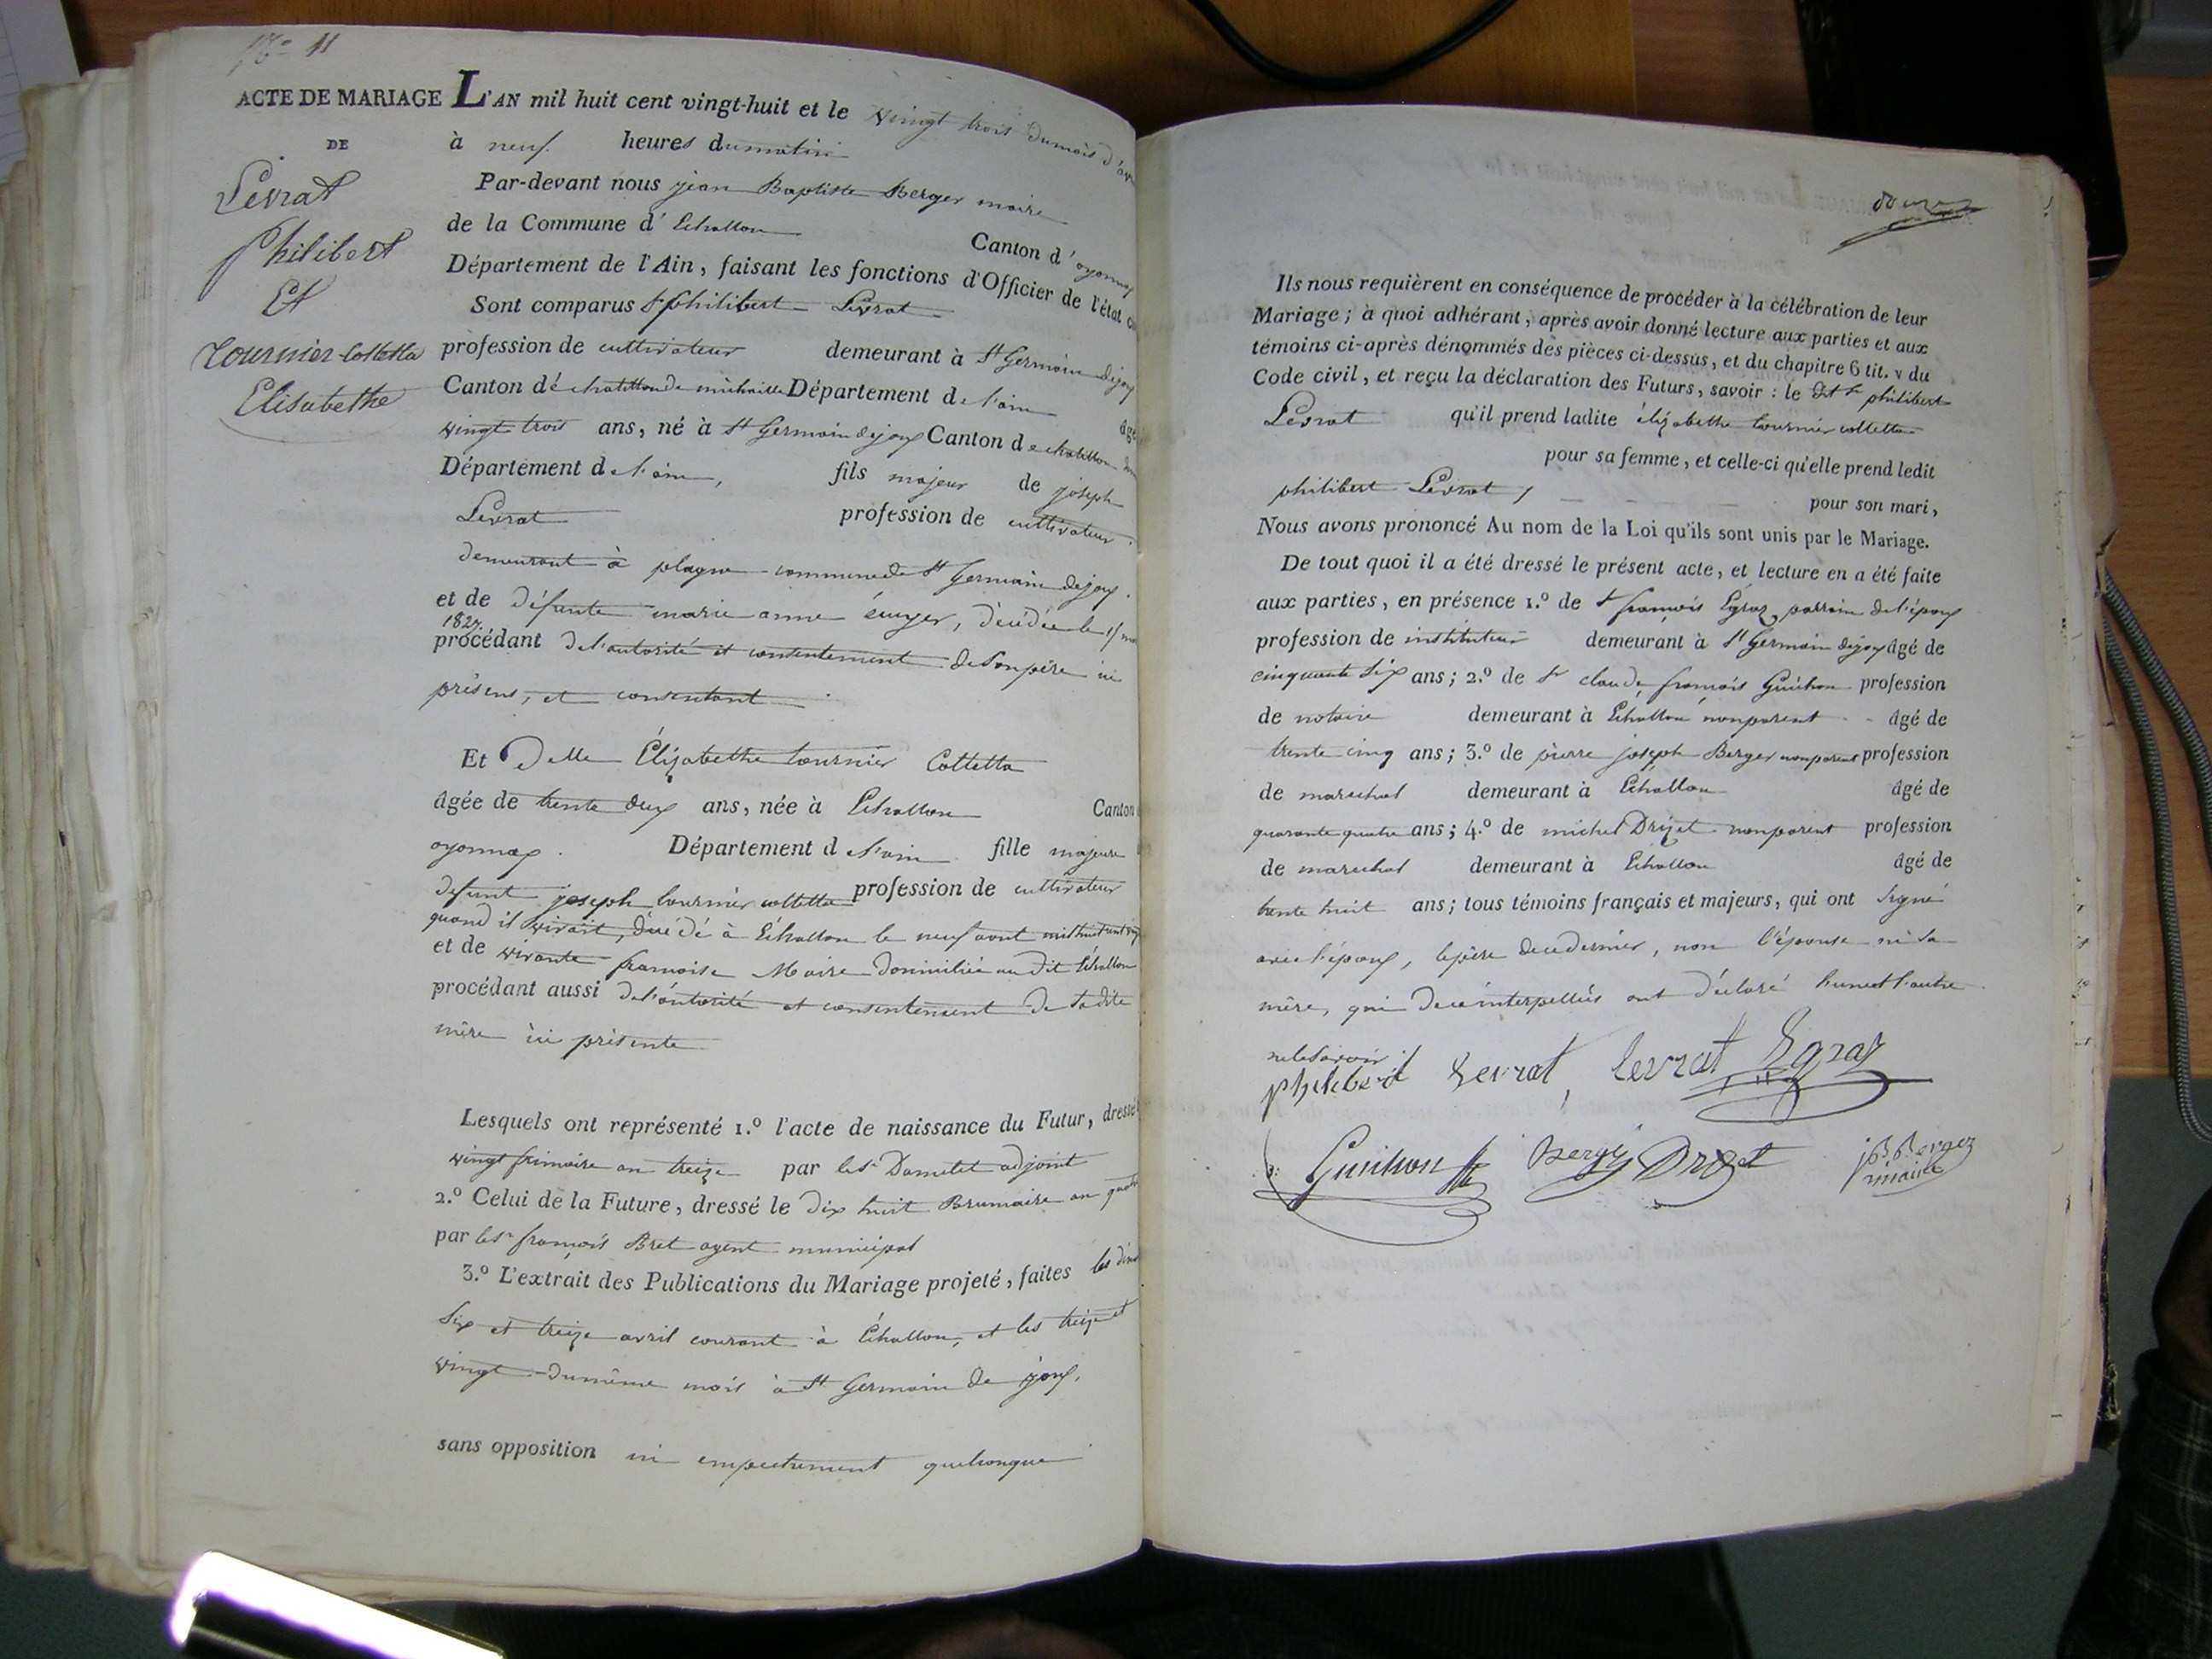 N.º 11
ACTE DE MARIAGE
DE
Levrat
Philibert
Et
Tournier Colletta
Elisabethe
L'AN mil huit cent vingt-huit et le vingt trois du mois d'avr
à neuf heures du matin
Par-devant nous jean Baptiste Berger maire
de la Commune d'Echallon Canton d'oyonnax
Département de l'Ain, faisant les fonctions d'Officier de l'état ci
Sont comparus Sr philibert Levrat
profession de cultivateur demeurant à St Germain de joux
Canton de chatillon de michaille Département de l'ain âgé
vingt trois ans, né à St Germain de joux Canton de chatillon
Département de l'ain, fils majeur de joseph
Levrat profession de cultivateur
demeurant à plagne commune de St Germain de joux.
et de défunte marie anne décédée le
1827.
procédant de l'autorité et consentement de son père ici
présent, et consentant
Et Delle Élizabethe tournier Colletta
âgée de trente deux ans, née à Echallon Canton
oyonnax. Département de l'ain fille majeure
defunt joseph tournier colletta profession de cultivateur
quand il vivait, décédé à Echallon le neuf aout mil huit cent
et de vivante francoise Maire domiciliée au dit Echallon
procédant aussi de l'autorité et consentement de sadite
mère ici présente
Lesquels ont représenté 1.º l'acte de naissance du Futur, dressé
vingt frimaire an treize par le Sr adjoint
2.º Celui de la Future, dressé le dix huit Brumaire an quatre
par le Sr françois Bret agent municipal
3.º L'extrait des Publications du Mariage projeté, faites les dim
six et treize avril courant à Echallon, et les treize et
vingt du même mois à St Germain de joux,
sans opposition ni empechement quelconque
douze
Ils nous requièrent en conséquence de procéder à la célébration de leur
Mariage; à quoi adhérant, après avoir donné lecture aux parties et aux
témoins ci-après dénommés des pièces ci-dessus, et du chapitre 6 tit. v du
Code civil, et reçu la déclaration des Futurs, savoir : le dit Sr philibert
Levrat qu'il prend ladite élizabethe tournier colletta
pour sa femme, et celle-ci qu'elle prend ledit
philibert Levrat, pour son mari,
Nous avons prononcé Au nom de la Loi qu'ils sont unis par le Mariage.
De tout quoi il a été dressé le présent acte, et lecture en a été faite
aux parties, en présence 1.º de Sr françois Egraz parrain de l'époux
profession de instituteur demeurant à St Germain de joux âgé de
cinquante six ans; 2.º de Sr claude françois Guichon profession
de notaire demeurant à Echallon non parent âgé de
trente cinq ans; 3.º de pierre joseph Berger non parent profession
de marechal demeurant à Echallon âgé de
quarante quatre ans; 4.º de michel Drizet non parent profession
de marechal demeurant à Echallon âgé de
trente huit ans; tous témoins français et majeurs, qui ont signé
avec l'époux, le père de ce dernier, non l'épouse ni sa
mère, qui de ce interpellés ont déclaré l'une et l'autre
ne le savoir
philibert Levrat, levrat Egraz
Guichon Berger Drizet jB. Berger
maire